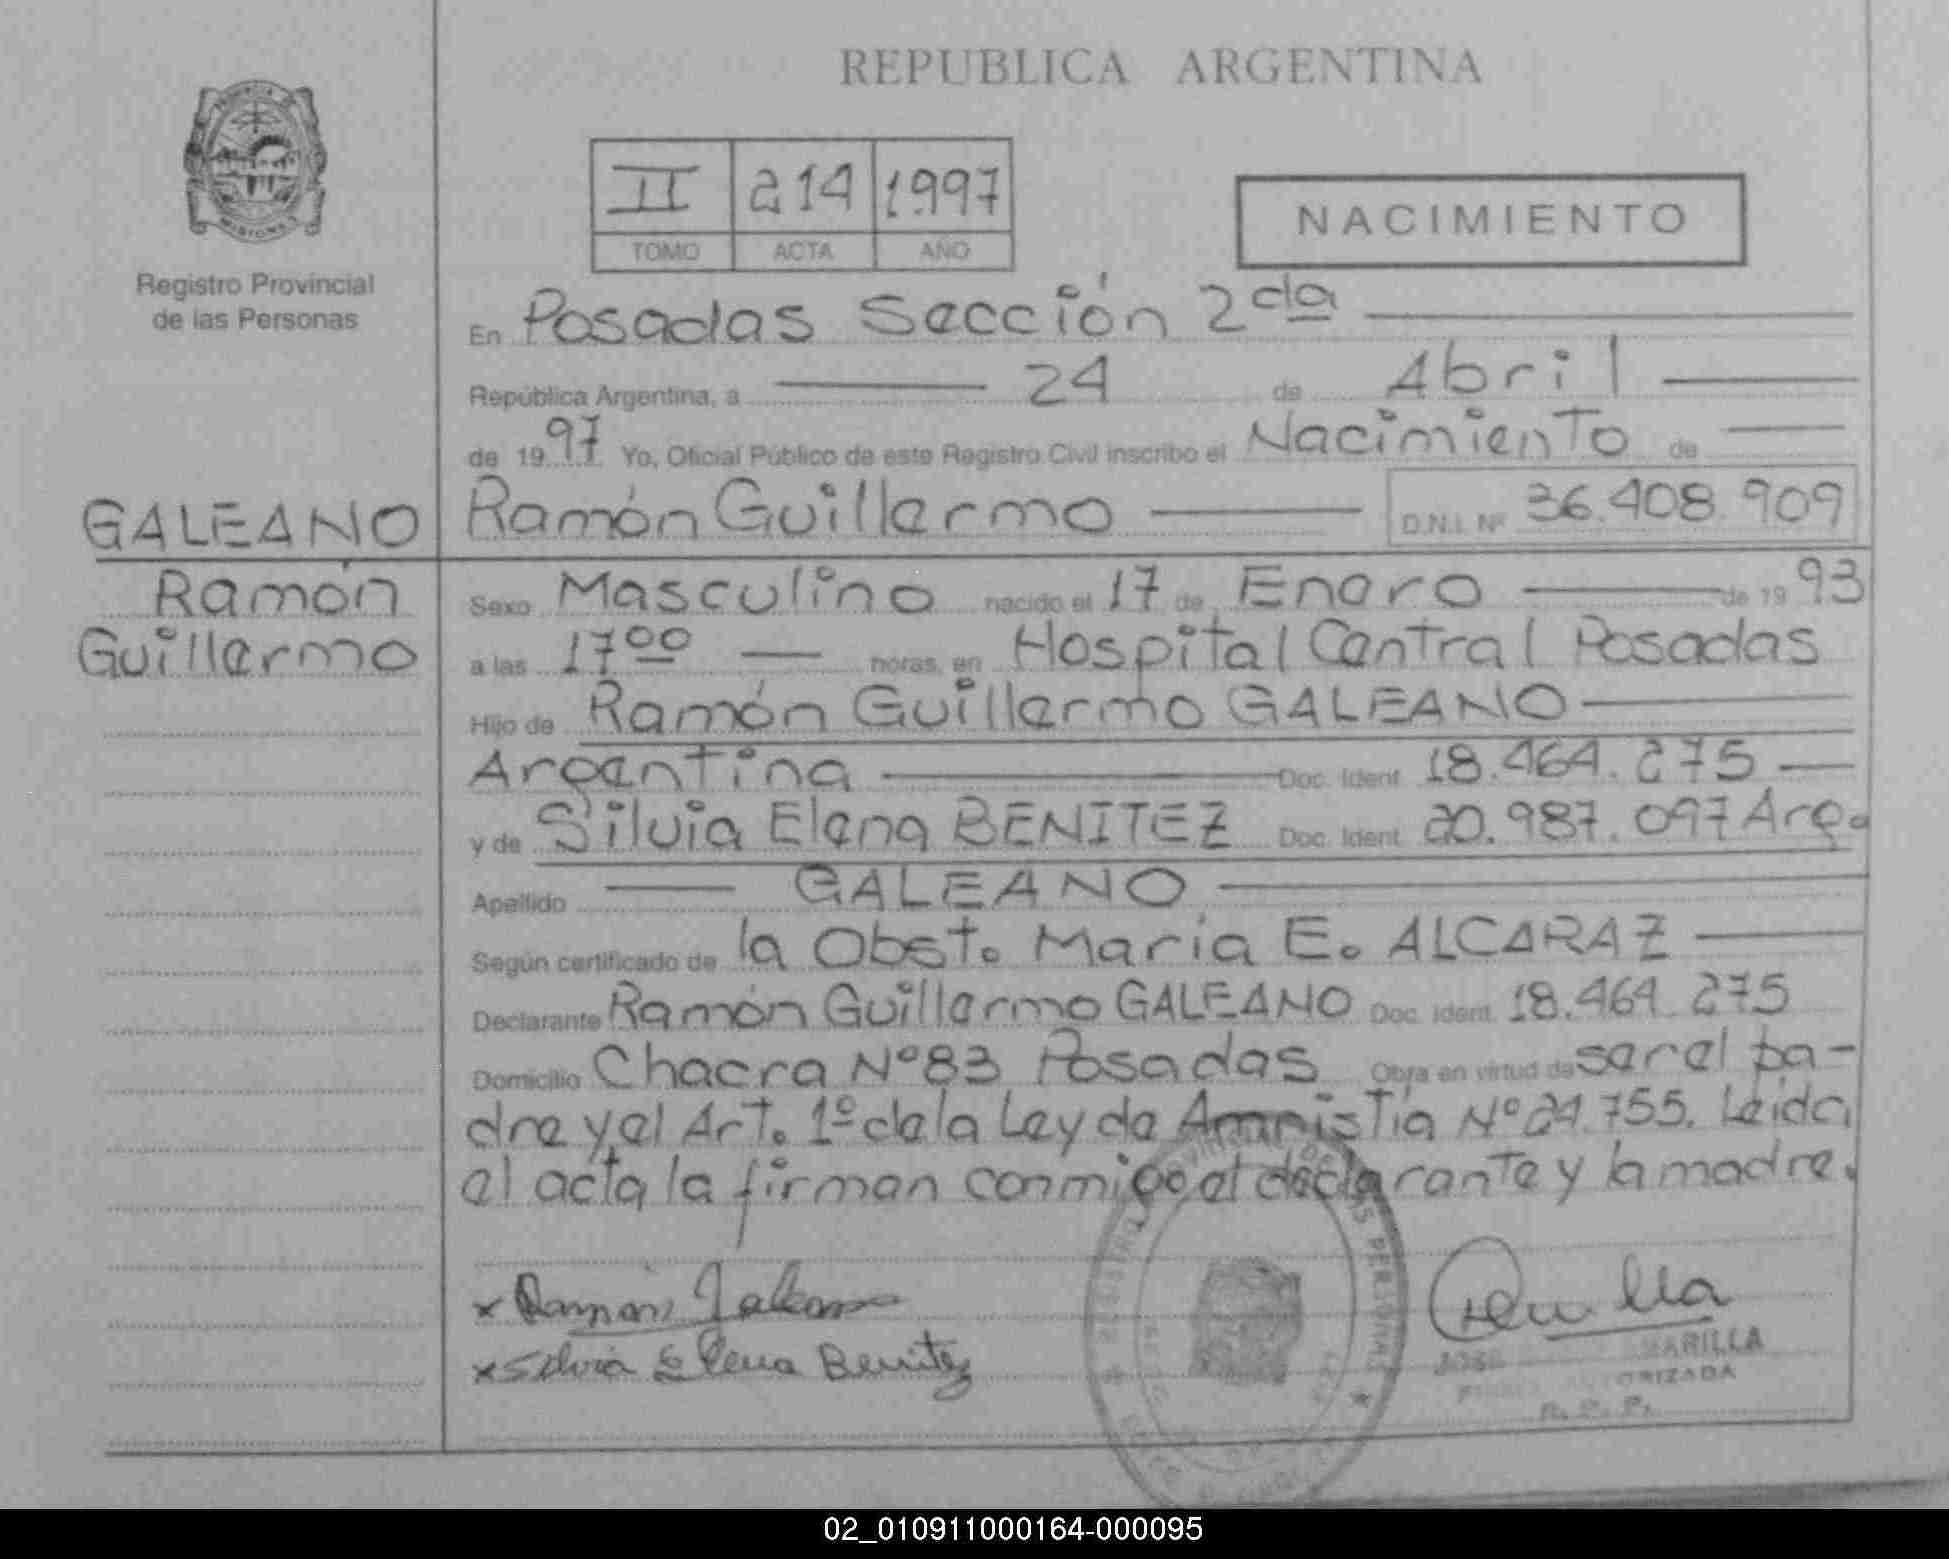 REPUBLICA ARGENTINA
II 214 1997
TOMO ACTA AÑO
NACIMIENTO
Registro Provincial
de las Personas
En Posadas Sección 2da
República Argentina, a 24 de Abril
de 1997 Yo, Oficial Público de este Registro Civil inscribo el Nacimiento de
GALEANO
Ramón Guillermo D.N.I. Nº 36.408.909
Ramón
Guillermo
Sexo Masculino nacido el 17 de Enero de 1993
a las 17 00 horas, en Hospital Central Posadas
Hijo de Ramón Guillermo GALEANO
Argentina Doc. Ident. 18.464.275
y de Silvia Elena BENITEZ Doc. Ident. 20.987.097 Arg.
Apellido GALEANO
Según certificado de la Obst. Maria E. ALCARAZ
Declarante Ramón Guillermo GALEANO Doc. Ident. 18.464.275
Domicilio Chacra Nº 83 Posadas Obra en virtud de ser el pa-
dre y el Art. 1º de la Ley de Amnistía Nº 24.755. Leida
el acta la firman conmigo el declarante y la madre.
x Ramón Galeano
x Silvia Elena Benitez
JOSE ARILLA
AUTORIZADA
R. P. P.
02_010911000164-000095